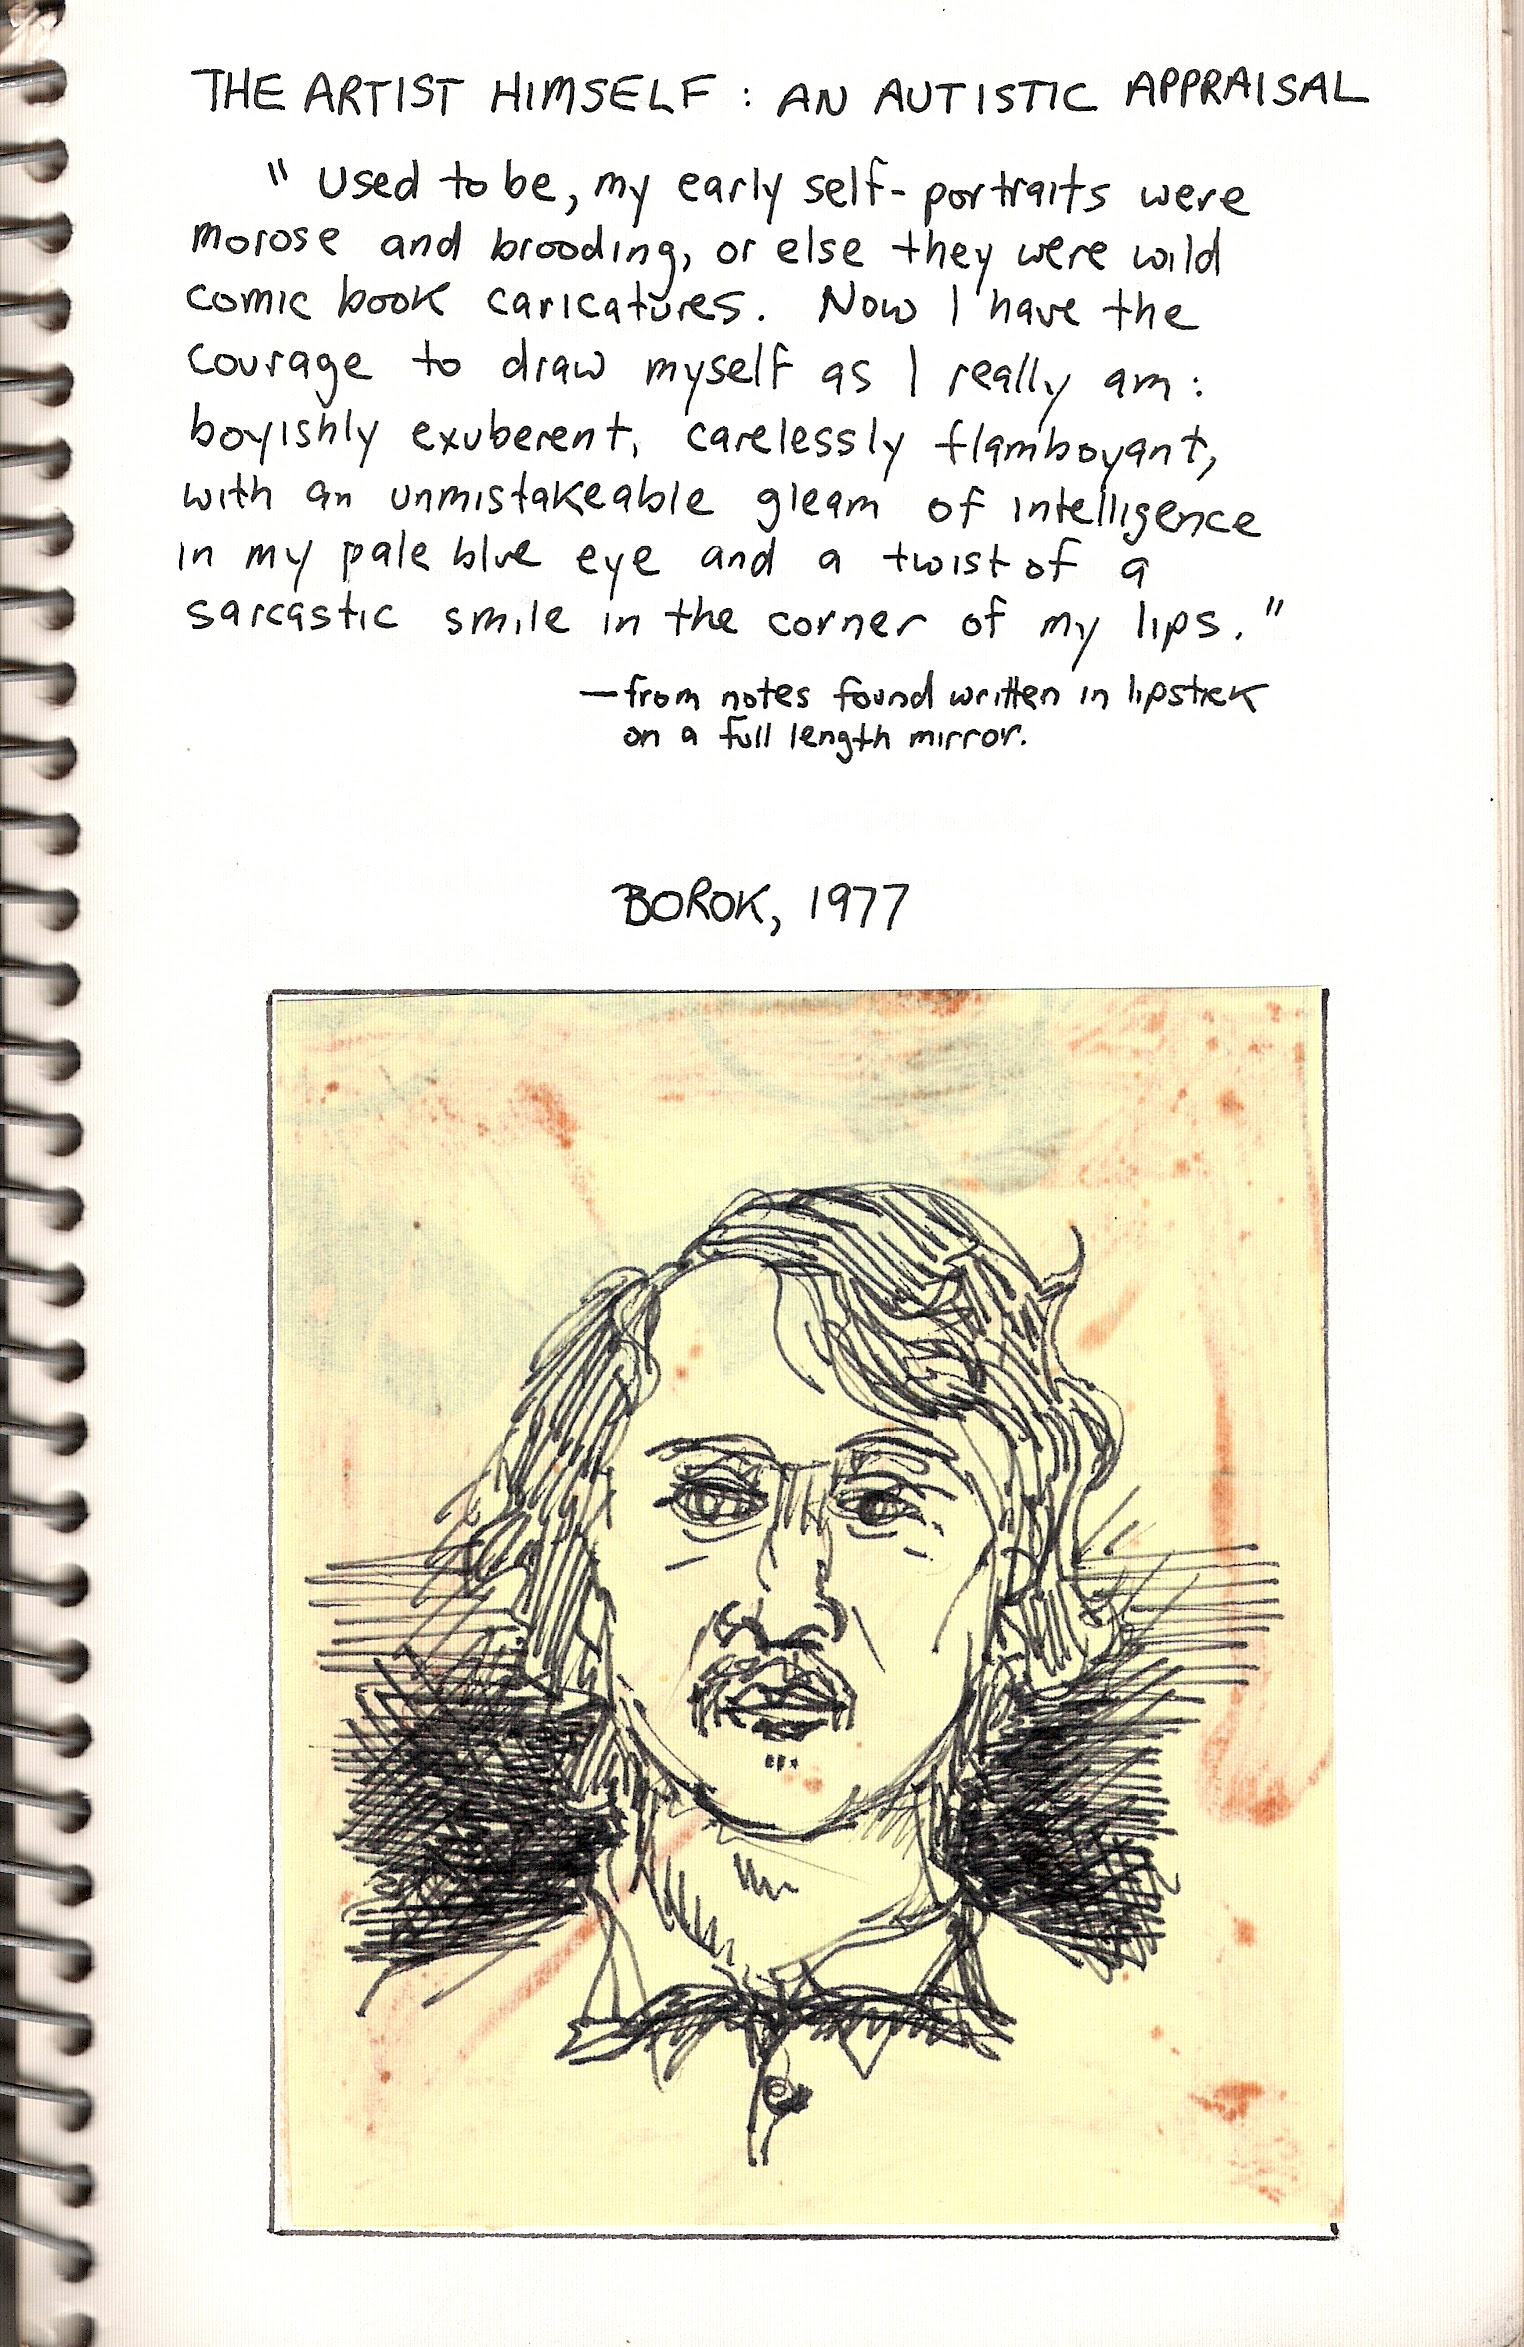 THE ARTIST HIMSELF : AN AUTISTIC APPRAISAL
" Used to be, my early self-portraits were
morose and brooding, or else they were wild
comic book caricatures. Now I have the
courage to draw myself as I really am:
boyishly exuberent, carelessly flamboyant,
with an unmistakeable gleam of intelligence
in my pale blue eye and a twist of a
sarcastic smile in the corner of my lips."
—from notes found written in lipstick
on a full length mirror.
BOROK, 1977